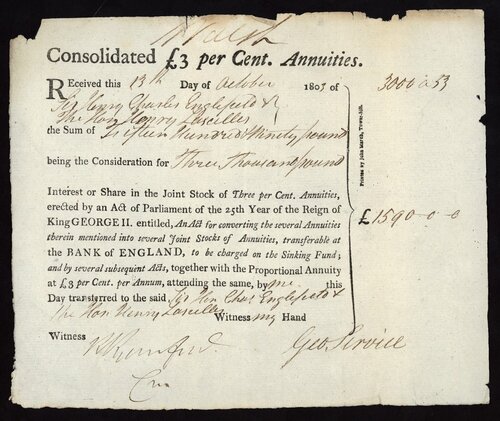 Consolidated £3 per Cent. Annuities.
Received this 13th Day of October 1801 of
Sir Henry Charles Englefield &
The Hon Henry Lascelles
the Sum of Fifteen Hundred & Ninety pound
being the Consideration for Three Thousand pound
Interest or Share in the Joint Stock of Three per Cent. Annuities,
erected by an Act of Parliament of the 25th Year of the Reign of
King GEORGE II. entitled, An Act for converting the several Annuities
therein mentioned into several Joint Stocks of Annuities, transferable at
the BANK of ENGLAND, to be charged on the Sinking Fund;
and by several subsequent Acts, together with the Proportional Annuity
at £3 per Cent. per Annum, attending the same, by me
this Day transferred to the said Sir Hen Chas Englefield &
The Hon. Henry Lascelles Witness my Hand
Witness
Geo Service
3000 a 53
£1590-0-0
Printed by John March, Tower-hill.